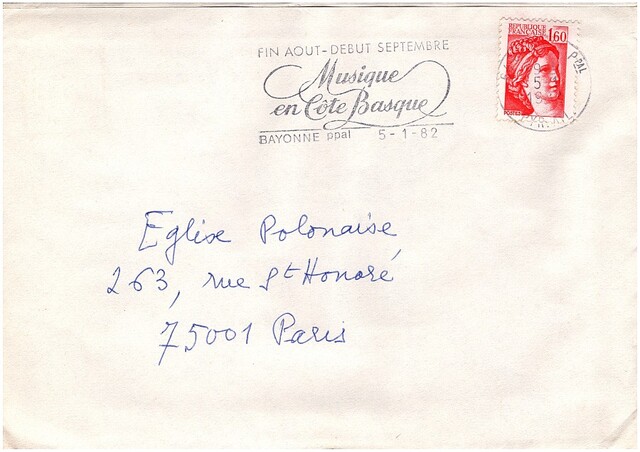 FIN AOUT-DEBUT SEPTEMBRE
Musique
en Côte Basque
BAYONNE ppal 5-1-82
REPUBLIQUE
FRANÇAISE 1,60
POSTES
PPAL
Eglise Polonaise
263, rue St Honoré
75001 Paris